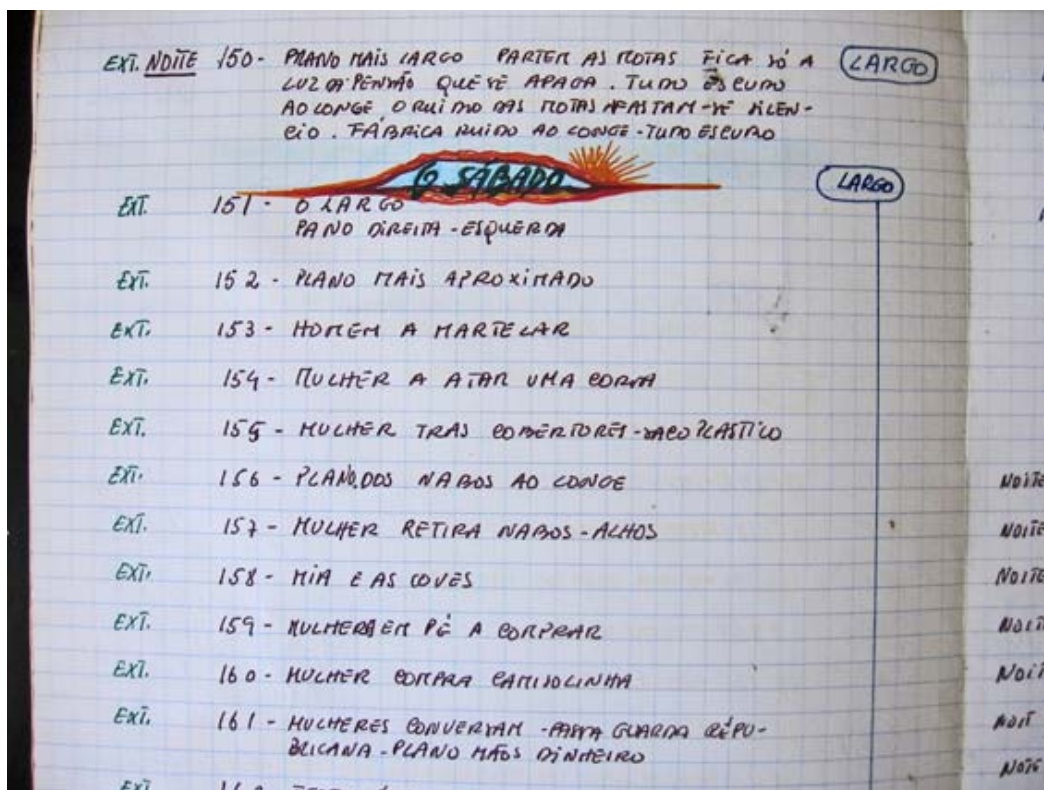 EXT. NOITE 150 - PLANO MAIS LARGO PARTEM AS MOTAS FICA SÓ A LARGO
LUZ DA PENSÃO QUE SE APAGA. TUDO ESCURO
AO LONGE O RUIDO DAS MOTAS AFASTAM-SE SILEN-
CIO. FÁBRICA RUIDO AO LONGE - TUDO ESCURO
O SÁBADO
LARGO
EXT. 151 - O LARGO
PANO DIREITA - ESQUERDA
EXT. 152 - PLANO MAIS APROXIMADO
EXT. 153 - HOMEM A MARTELAR
EXT. 154 - MULHER A ATAR UMA CORDA
EXT. 155 - MULHER TRAS COBERTORES - SACO PLASTICO
EXT. 156 - PLANO DOS NABOS AO LONGE
EXT. 157 - MULHER RETIRA NABOS - ALHOS
EXT. 158 - MIA E AS COVES
EXT. 159 - MULHER EM PÉ A COMPRAR
EXT. 160 - MULHER COMPRA CAMISOLINHA
EXT. 161 - MULHERES CONVERSAM - PASSA GUARDA RÉPU-
BLICANA - PLANO MÃOS DINHEIRO
EXT.
NOITE
NOITE
NOITE